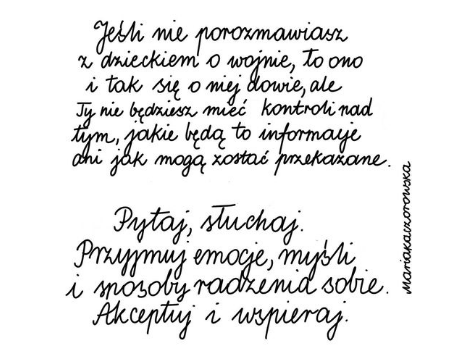 Jeśli nie porozmawiasz
z dzieckiem o wojnie, to ono
i tak się o niej dowie, ale
Ty nie będziesz mieć kontroli nad
tym, jakie będą to informacje
ani jak mogą zostać przekazane.
Pytaj, słuchaj.
Przyjmuj emocje, myśli
i sposoby radzenia sobie.
Akceptuj i wspieraj.
mariakaczorowska